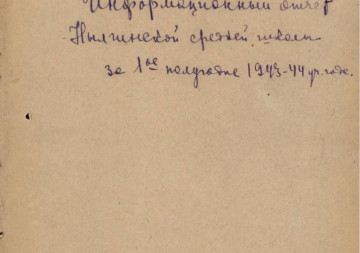 Информационный отчет
Нылгинской средней школы
за 1ое полугодие 1943-44 уч. годе.